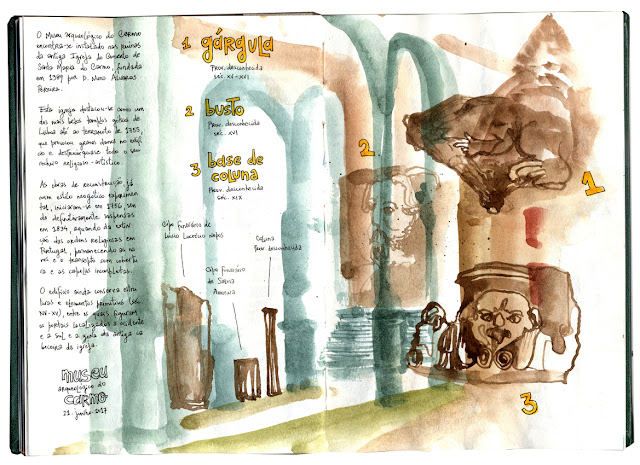 O Museu arqueológico do Carmo
encontra-se instalado nas ruínas
da antiga Igreja do Convento de
Santa Maria do Carmo, fundada
em 1389 por D. Nuno Álvares
Pereira.
Esta igreja destacou-se como um
dos mais belos templos góticos de
Lisboa até ao terramoto de 1755,
que provocou graves danos no edifí
cio e desapareceu todo o seu
recheio religioso-artístico.
As obras de reconstrução, já
num estilo neogótico experimen
tal, iniciaram-se em 1756, sen
do definitivamente suspensas
em 1834, aquando da extin
ção das ordens religiosas em
Portugal, permanecendo as na
ves e o transepto sem cobertu
ra e as capelas incompletas.
O edifício ainda conserva estru
turas e elementos primitivos (séc.
XIV-XV), entre os quais figuram
os portais localizados a ocidente
e a sul e a
da antiga ca
beceira da igreja.
museu
arqueológico do
carmo
21. junho. 2017
1 gárgula
Prov. desconhecida
séc. XV-XVI
2 busto
Prov. desconhecida
séc. XVI
3 base de
coluna
Prov. desconhecida
séc. XIX
Cipo funerário de
Cipo funerário
de
Coluna
Prov. desconhecida
2
1
3